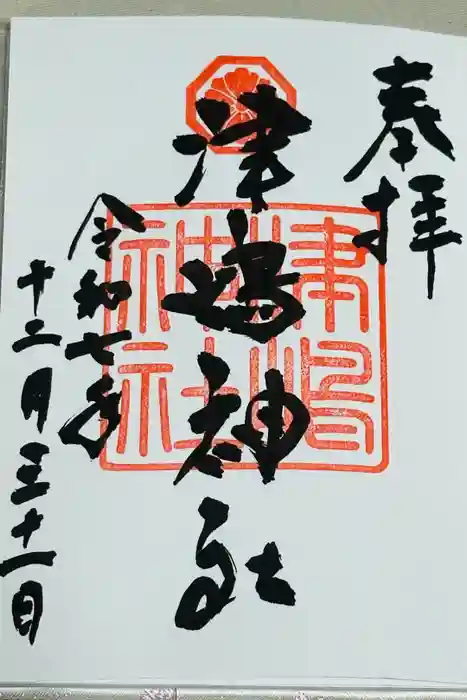 奉拝
津嶋神社
津嶋
神社
令和七年
十二月三十一日